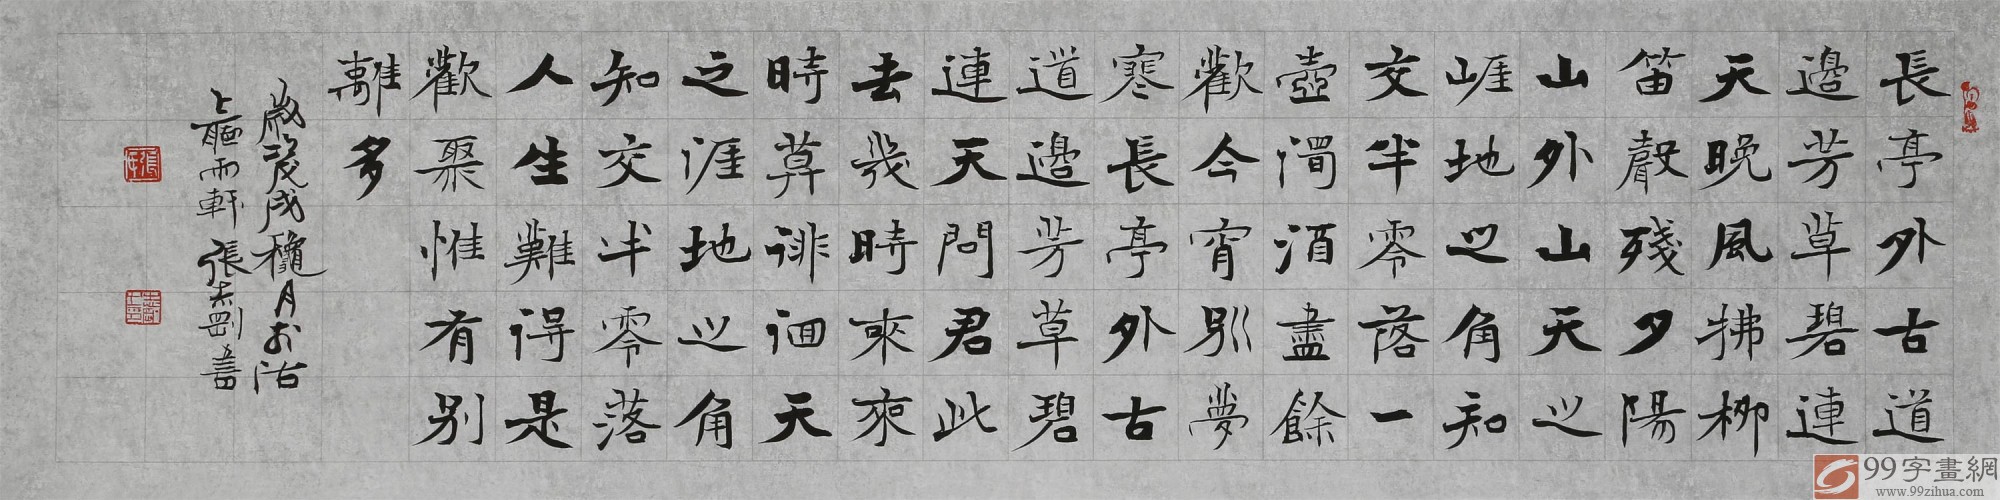 長亭外古道
邊芳草碧連
天晚風拂柳
笛聲殘夕陽
山外山天之
崖地之角知
交半零落一
壺濁酒盡餘
歡今宵別夢
寒長亭外古
道邊芳草碧
連天問君此
去幾時來來
時莫徘徊天
之涯地之角
知交半零落
人生難得是
歡聚惟有別
離多
歲次戊戌龝月於沽
上聽雨軒張志剛書
99字畫網
www.99zihua.com